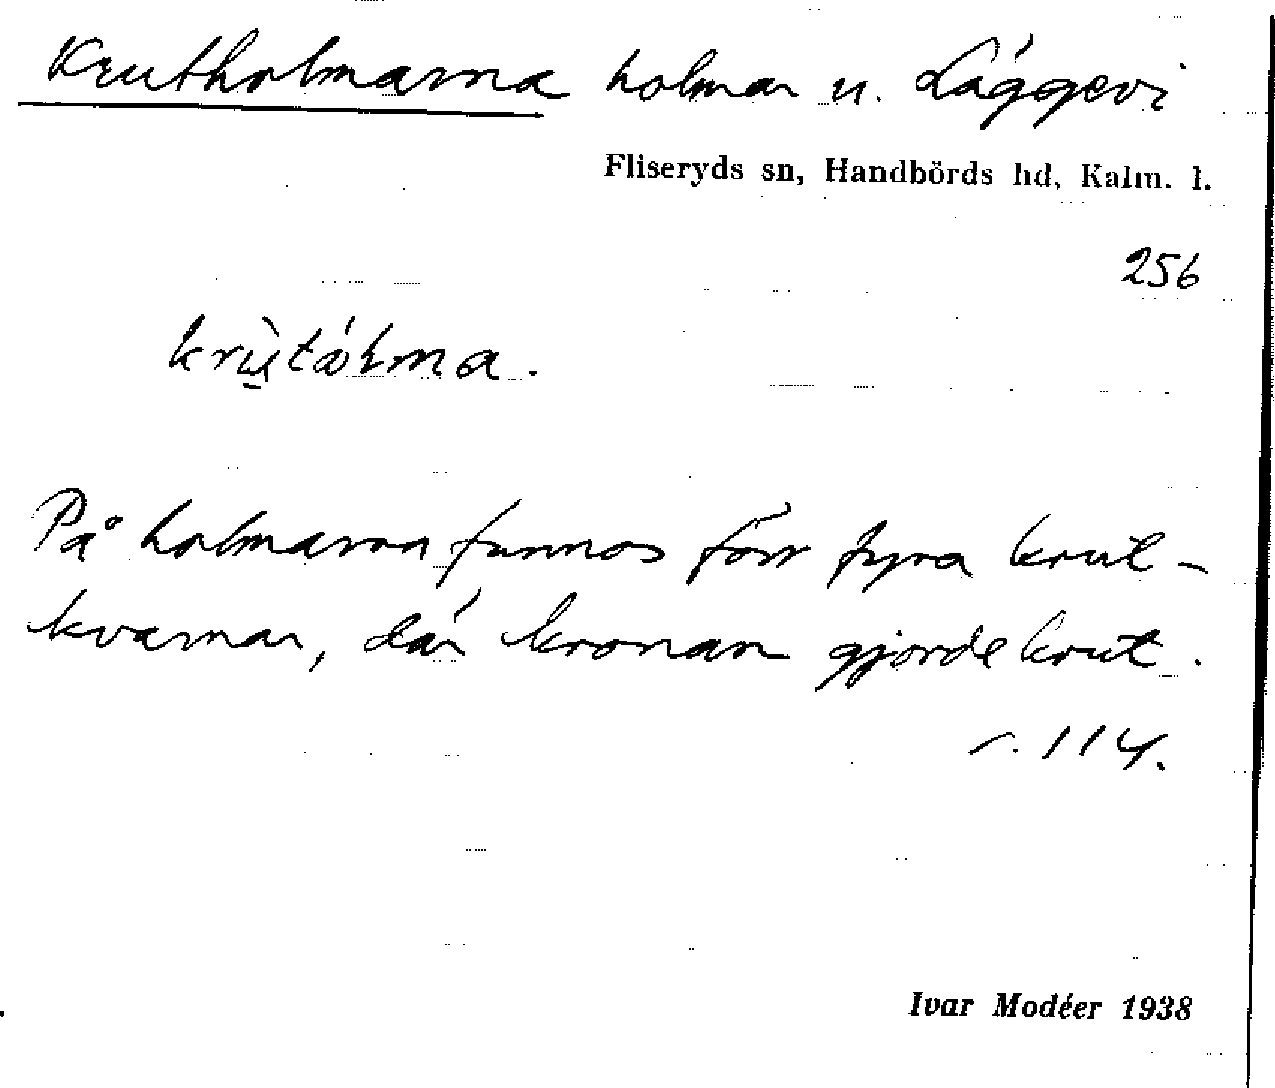 Krutholmarna holmar u. Läggevi
Fliseryds sn, Handbörds hd, Kalm. l.
256
På holmarna funnos förr fyra krut-
kvarnar, där kronan gjorde krut.
r. 114.
Ivar Modéer 1938